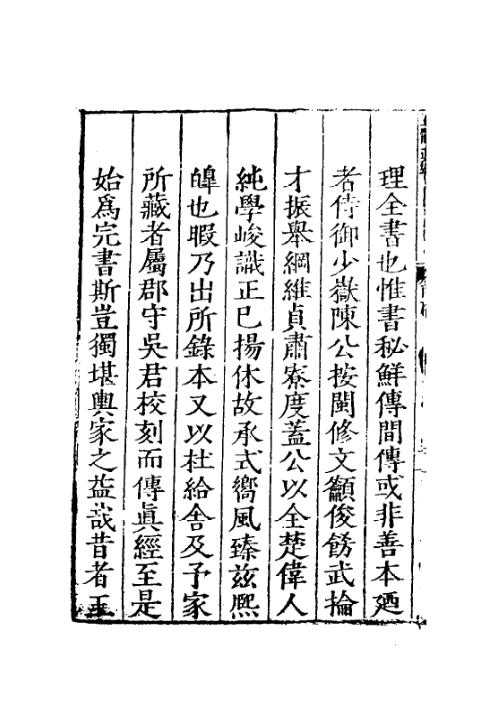 理全書也惟書秘鮮傳間傳或非善本廼
者侍御少嶽陳公按閩修文籲俊餝武掄
才振舉綱維貞肅寮度蓋公以全楚偉人
純學峻識正已揚休故承式嚮風臻兹熈
皥也暇乃出所錄本又以杜給舍及予家
所藏者屬郡守吳君校刻而傳眞經至是
始爲完書斯豈獨堪輿家之益哉昔者王